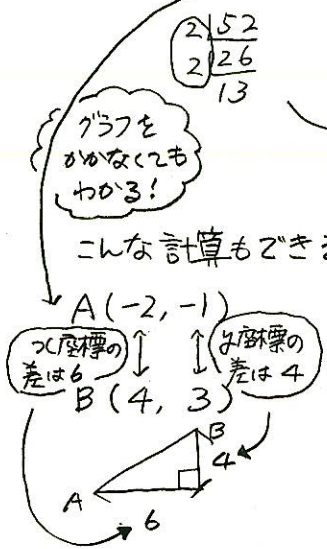 2 | 52
2 | 26
13
グラフを
かかなくても
わかる!
こんな計算もできる
A(-2, -1)
x座標の
差は6
y座標の
差は4
B(4, 3)
B
4
A
6